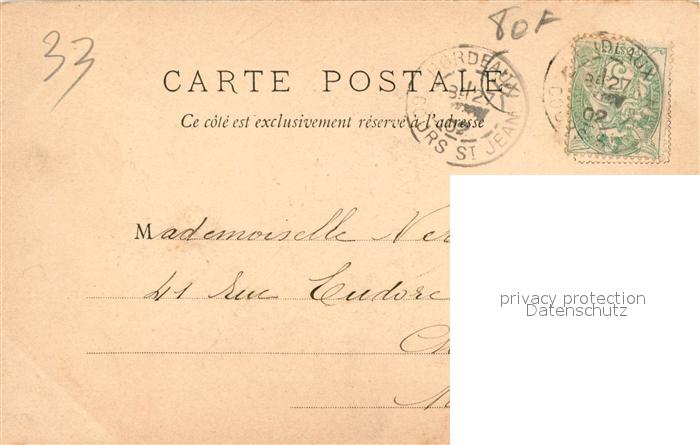 33
80F
CARTE POSTALE
Ce côté est exclusivement réservé à l'adresse
BORDEAUX
27
02
COURS ST JEAN
Mademoiselle
41 Rue Eudore
privacy protection
Datenschutz